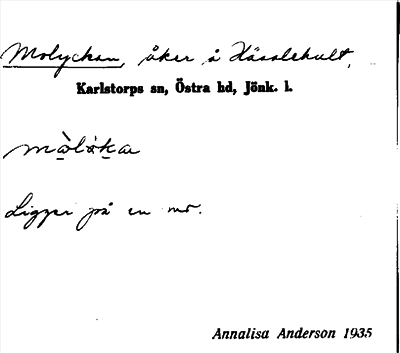 Molyckan, åker å Hässlehult,
Karlstorps sn, Östra hd, Jönk. l.
Ligger på en mo.
Annalisa Anderson 1935